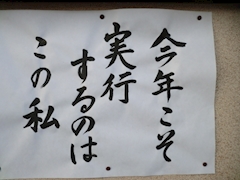 今年こそ
実行
するのは
この私